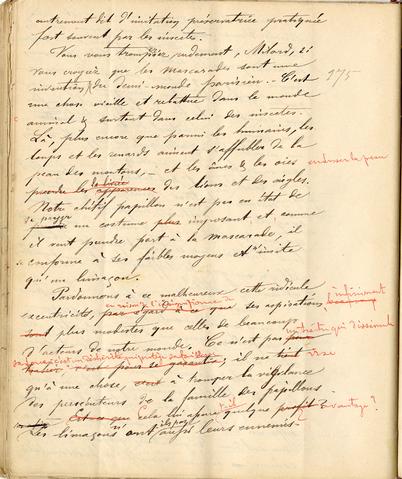 autrement dit d'imitation préservatrice pratiquée
fort souvent par les insectes.
Vous vous trompiez rudement, Milord, si
vous croyez que les mascarades sont une
invention du demi-monde parisien. — C'est
175
une chose vieille et rebattue dans le monde
animal & surtout dans celui des insectes.
Là, plus encore que parmi les humains, les
loups et les renards aiment s'affubler de la
peau des moutons, — et les ânes & les oies endosser la peau
prendre les apparences des lions et des aigles.
Notre chétif papillon n'est pas en état de
se payer un costume plus imposant et comme
il veut prendre part à la mascarade, il
se conforme à ses faibles moyens et imite
qu'un limaçon.
Pardonnons à ce malheureux cette ridicule
excentricité, par égard à ce que ses aspirations infiniment
sont plus modestes que celles de beaucoup
d'acteurs de notre monde. Ce n'est pas
il ne tient
qu'à une chose, c'est à tromper la vigilance
des persécuteurs de la famille des papillons.
Est-ce que Cela lui apure quelque profit avantage?
Les limaçons n'ont ils pas aussi leurs ennemis